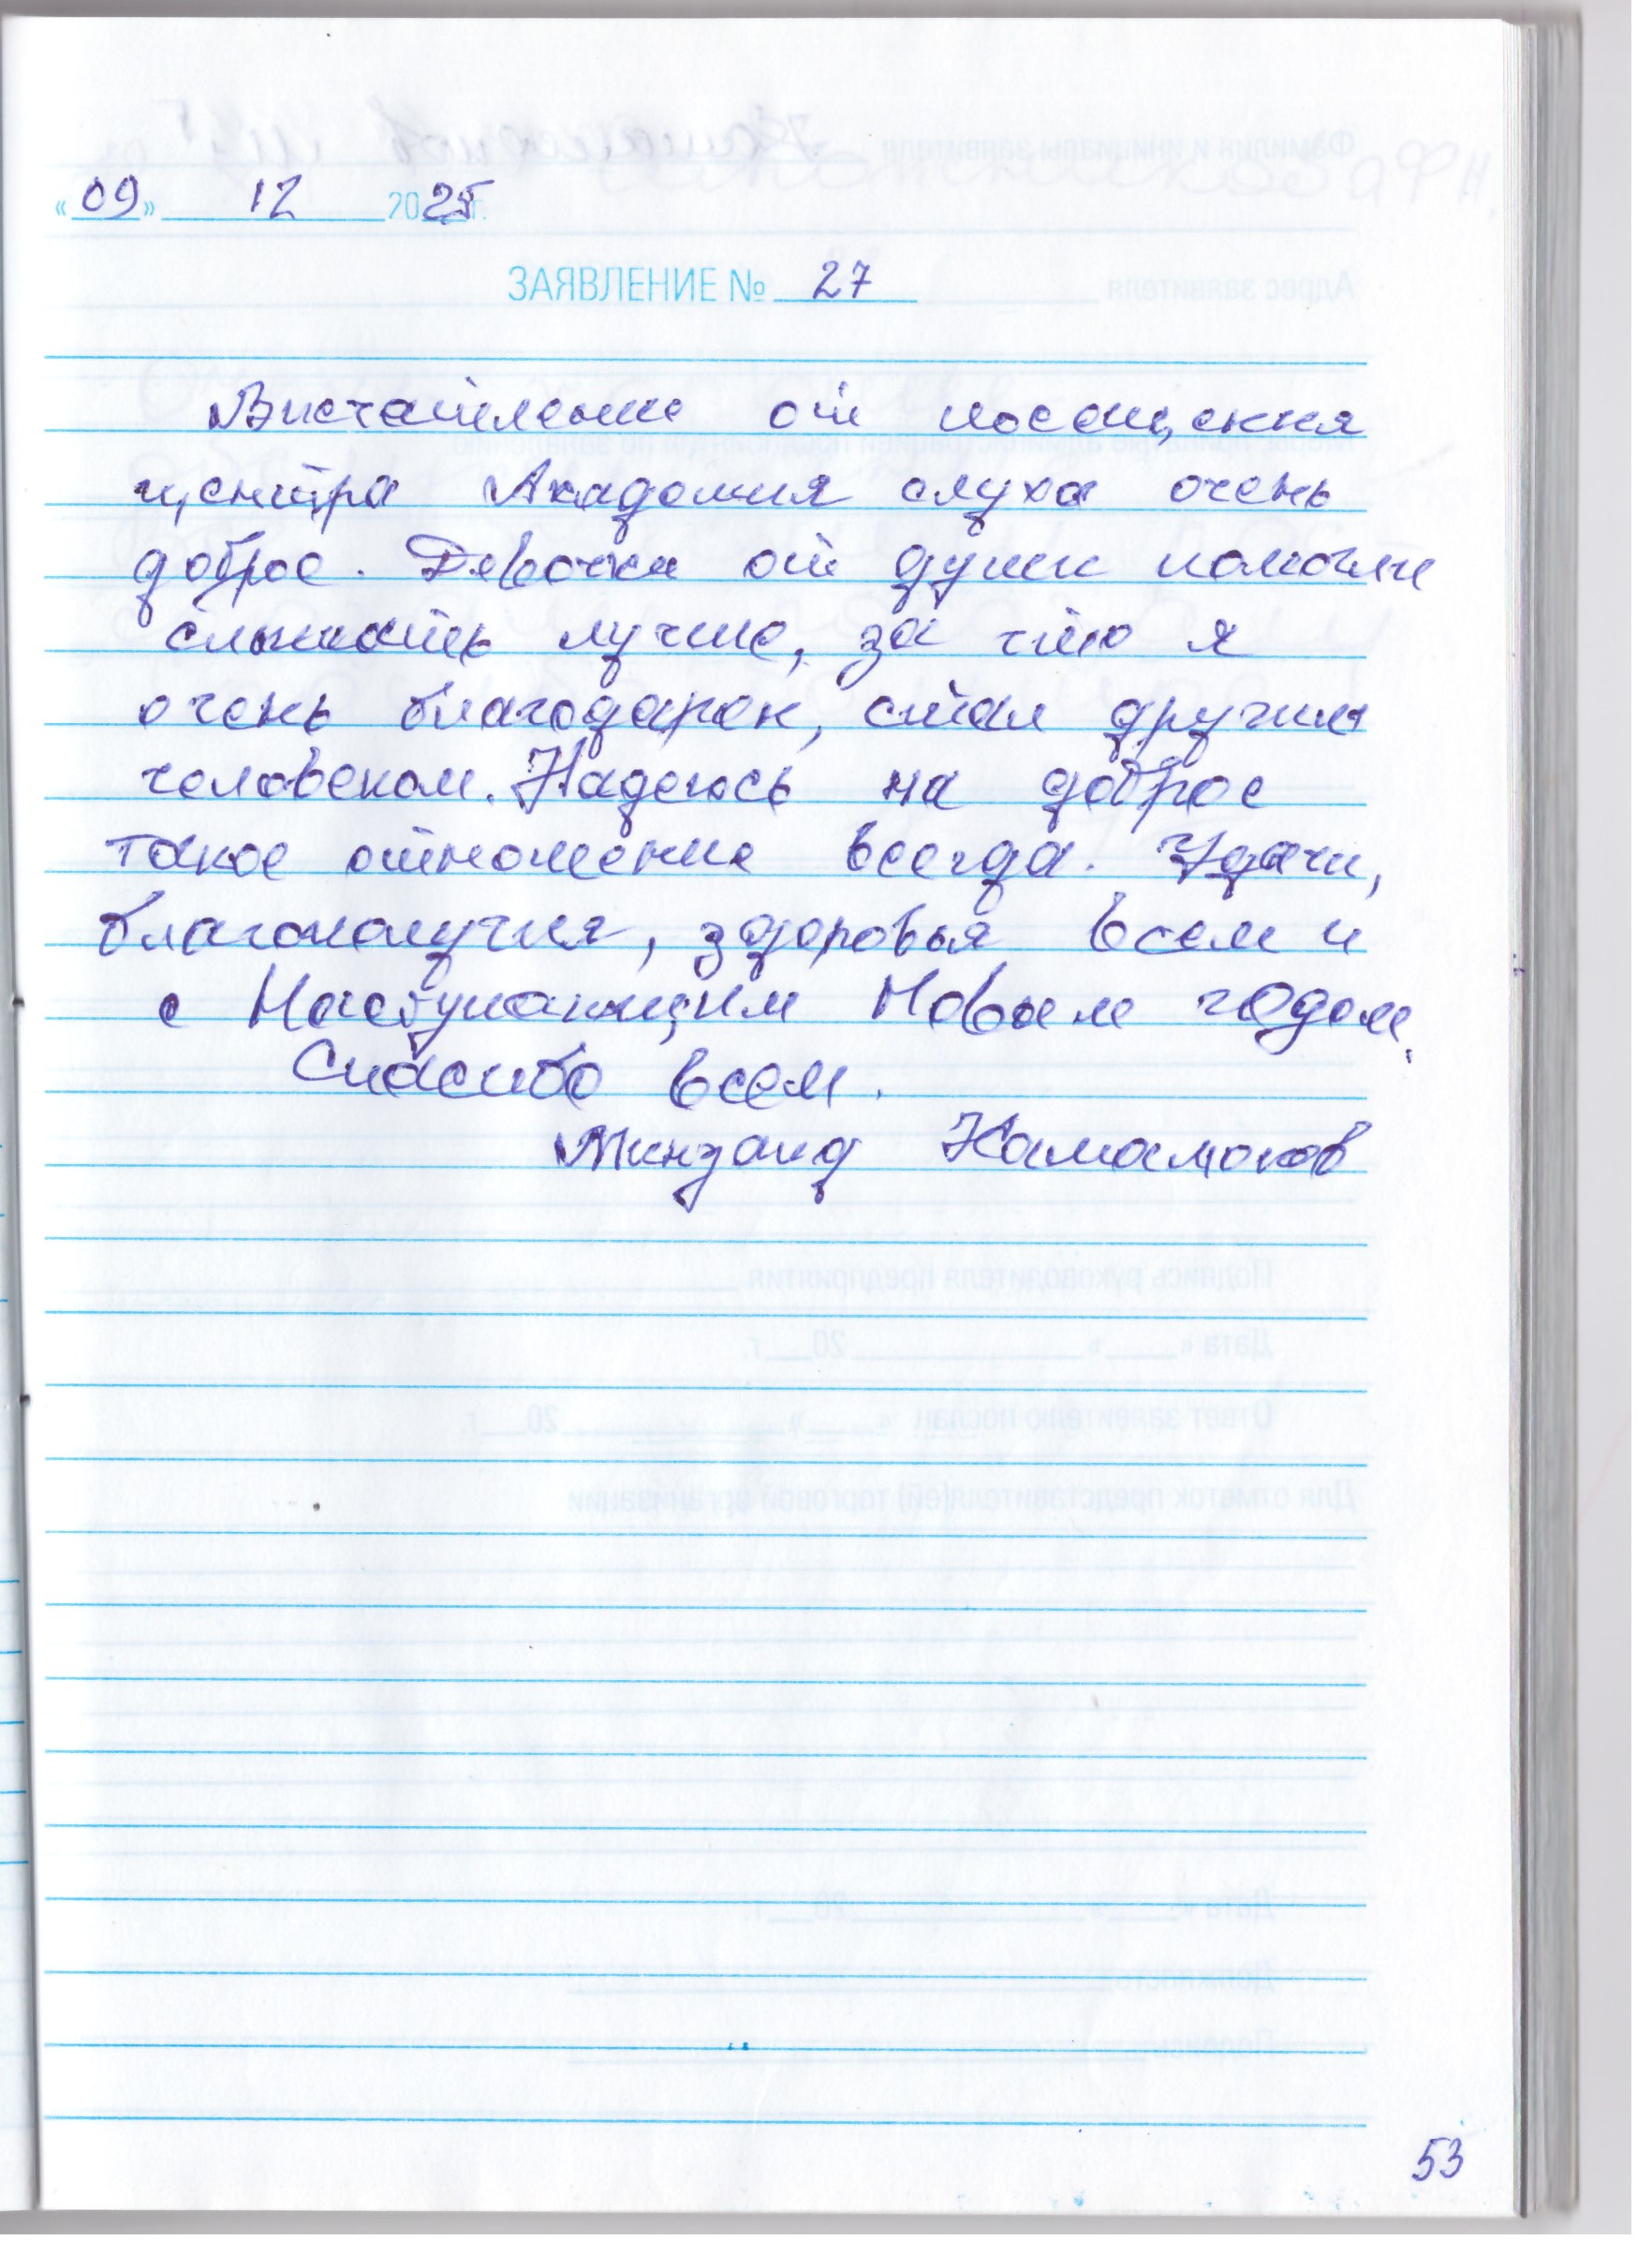 «09» 12 2025 г.
ЗАЯВЛЕНИЕ № 27
от посещения
центра Академия слуха очень
доброе. Девочки от души помогли
слышать лучше, за что я
очень благодарен, стал другим
человеком. Надеюсь на доброе
такое отношение всегда. Удачи,
благополучия, здоровья всем и
с Наступающим Новым годом.
Спасибо всем.
53